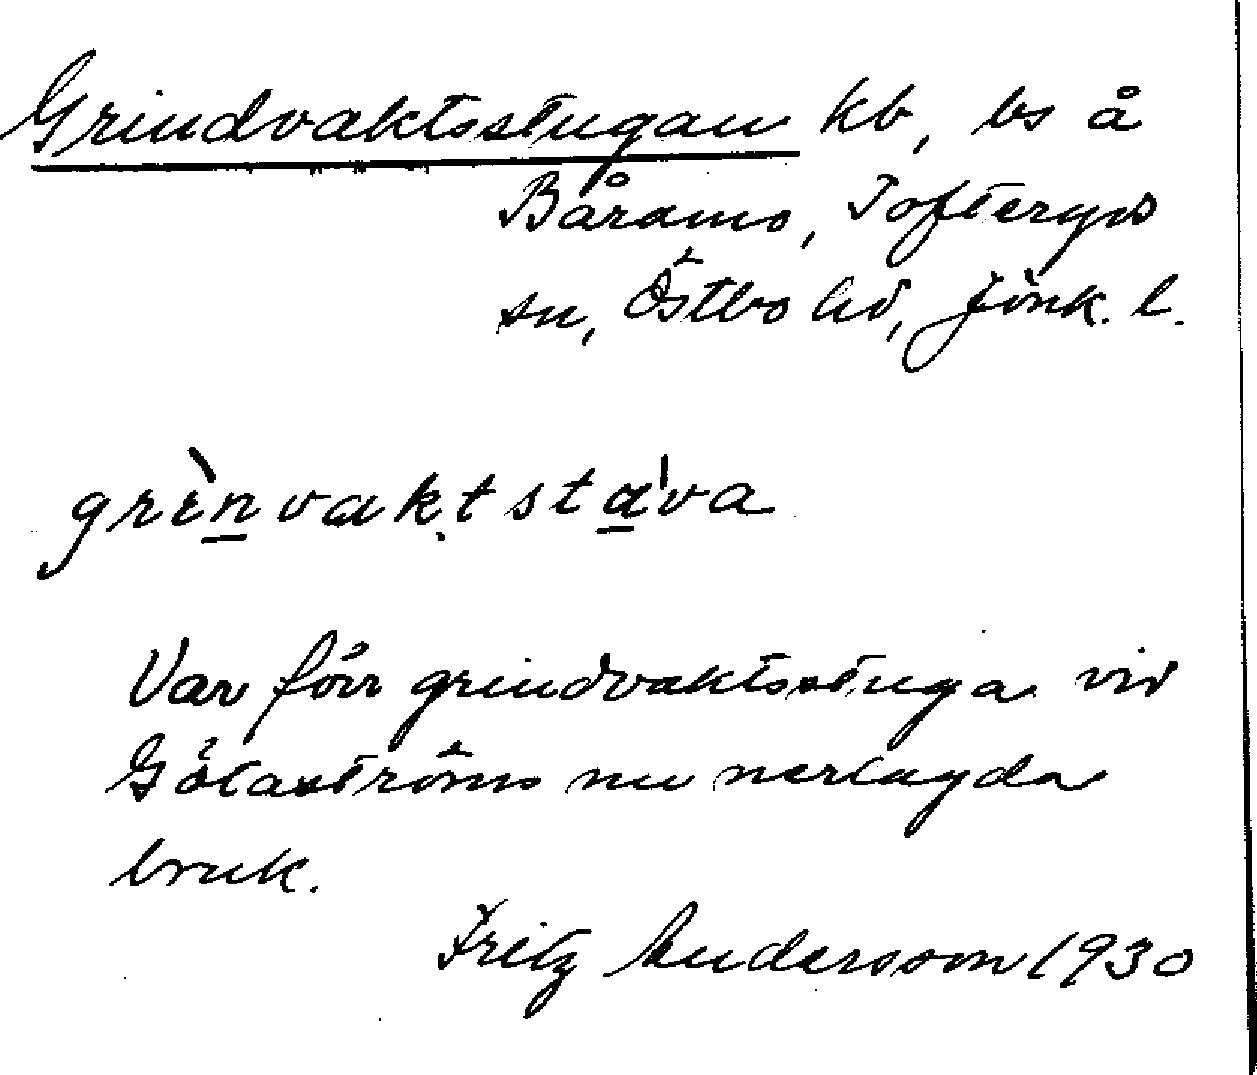 Grindvaktsstugan kb, bs å
Båramo, Tofteryds
sn, Östbo hd, Jönk. l.
grìn̲vaktsta̲'va
Var förr grindvaktsstuga vid
Götaströms nu nerlagda
bruk.
Fritz Andersson 1930